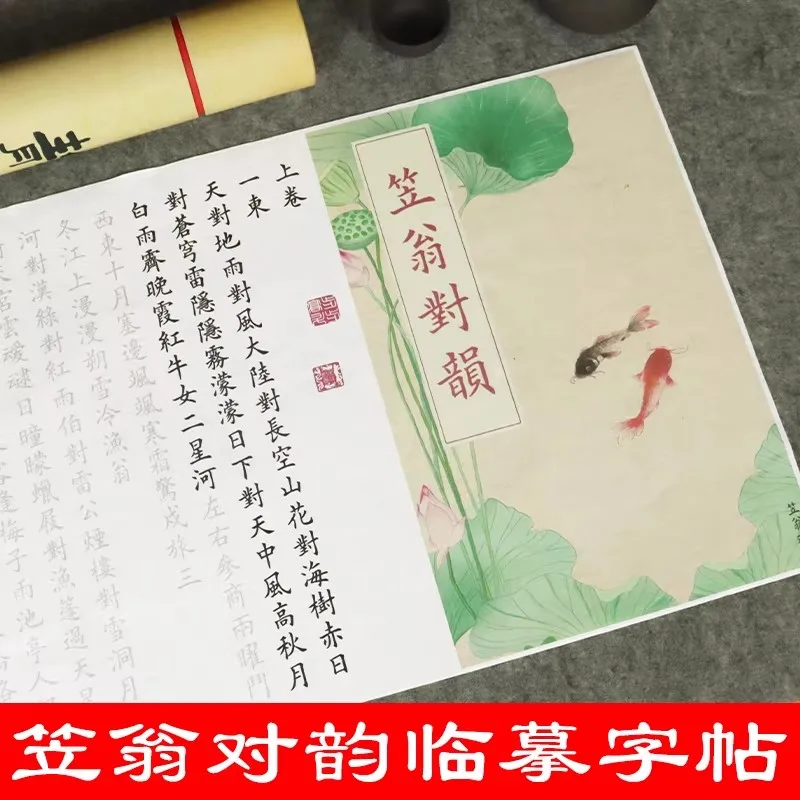 笠翁對韻
笠翁
上卷
一東
天對地雨對風大陸對長空山花對海樹赤日
對蒼穹雷隱隱霧濛濛日下對天中風高秋月
白雨霽晚霞紅牛女二星河左右參商兩曜鬥
西東十月塞邊颯颯寒霜驚戍旅三
冬江上漫漫朔雪冷漁翁
河對漢綠對紅雨伯對雷公煙樓對雪洞月
天宮雲靉靆日曈曚蠟屐對漁蓬過天星
逢梅子雨池亭人
笠翁对韵临摹字帖